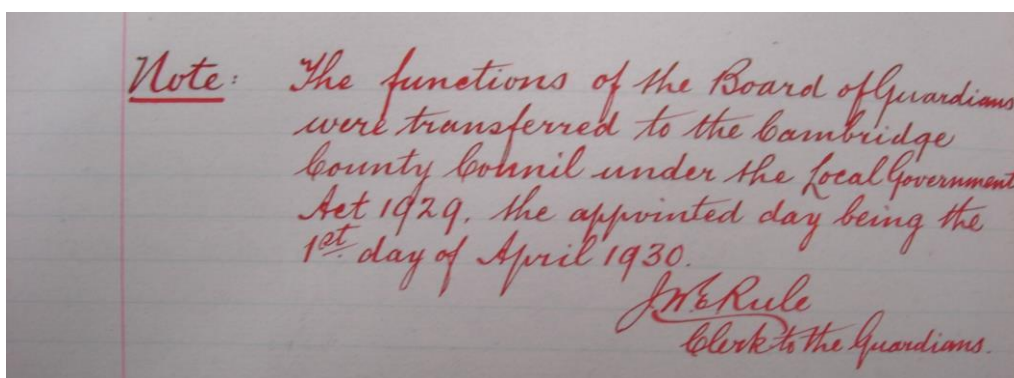 Note: The functions of the Board of Guardians
were transferred to the Cambridge
County Counil under the Local Government
Act 1929, the appointed day being the
1st day of April 1930.
J.W.E Rule
Clerk to the Guardians.